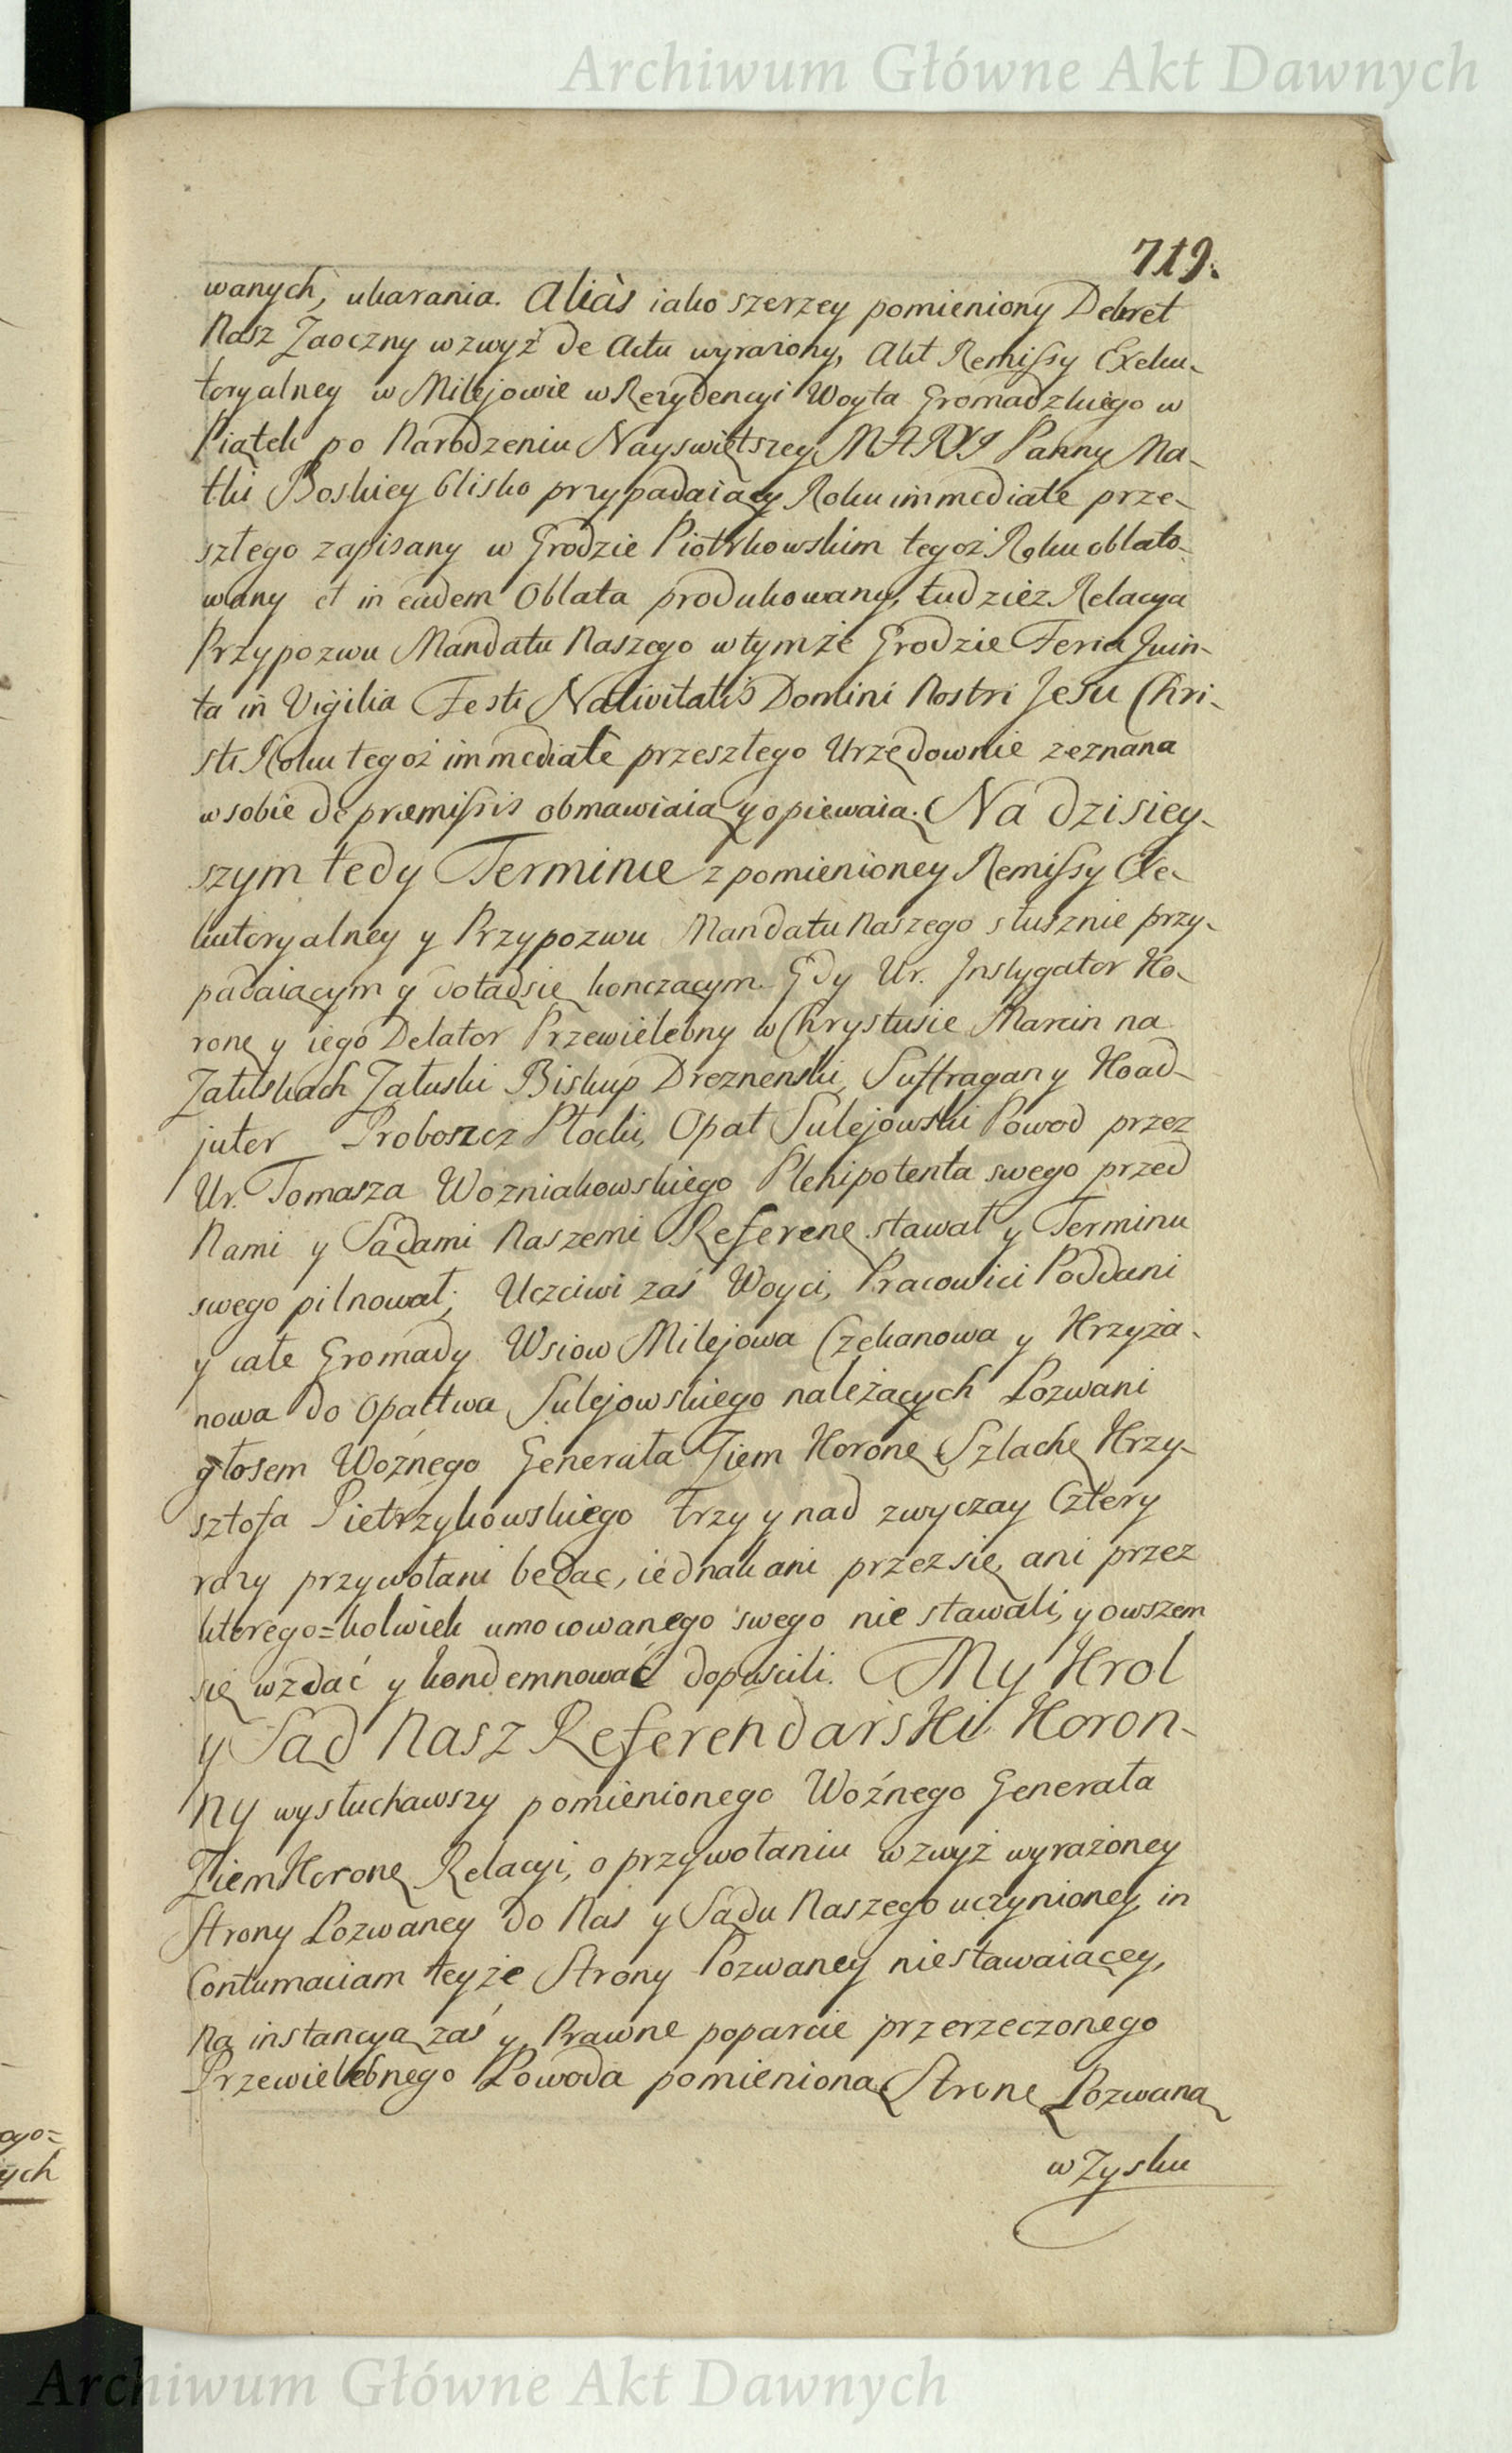 Archiwum Główne Akt Dawnych
719.
wanych, ukarania. Aliàs iako szerzey pomieniony Dekret
Nasz Zaoczny wzwyż de Actu wyrażony, Akt Remissy Exeku-
toryalney w Milejowie w Rezydencyi Woyta Gromadzkiego w
Piątek po Narodzeniu Nayswiętszey MARYI Panny Ma-
tki Boskiey blisko przypadaiący Roku immediate prze-
szłego zapisany w Grodzie Piotrkowskim tegoż Roku oblato-
wany et in eadem Oblata produkowany, tudzież Relacya
Przypozwu Mandatu Naszego w tymże Grodzie Feria Quin-
ta in Vigilia Festi Nativitatis Domini Nostri Jesu Chri-
sti Roku tegoż immediate przeszłego Urzędownie zeznana
w sobie de præmissis obmawiaią y opiewaią. Na dzisiey-
szym tedy Terminie z pomienioney Remissy Exe-
kutoryalney y Przypozwu Mandatu Naszego słusznie przy-
padaiącym y dotąd się konczącym. Gdy Ur. Instygator Ko-
ronę y iego Delator Przewielebny w Chrystusie Marcin na
Załuskach Załuski Biskup Drezneński, Suffragan y Koad-
jutor Proboszcz Płocki, Opat Sulejowski Powod przez
Ur. Tomasza Wozniakowskiego Plenipotenta swego przed
Nami y Sądami Naszemi Referenę stawał y Terminu
swego pilnował; Uczciwi zaś Woyci, Pracowici Poddani
y całe Gromady Wsiow Milejowa Czekanowa y Krzyża-
nowa do Opactwa Sulejowskiego należących Pozwani
głosem Woźnego Generała Ziem Koronę Szlachę Krzy-
sztofa Pietrzykowskiego trzy y nad zwyczay Cztery
razy przywołani będąc, iednak ani przez się, ani przez
ktorego=kolwiek umocowanego swego nie stawali, y owszem
się wzdać y kondemnować dopuscili. My Krol
y Sąd Nasz Referendarski Koron-
ny wysłuchawszy pomienionego Woźnego Generała
Ziem Koronę Relacyi, o przywołaniu wzwyż wyrażoney
Strony Pozwaney do Nas y Sądu Naszego uczynioney, in
Contumaciam teyże Strony Pozwaney niestawaiącey,
Na instancyą zaś y Prawne poparcie przerzeczonego
Przewielebnego Powoda pomienioną Stronę Pozwaną
w Zysku
ogo=
ych
Archiwum Główne Akt Dawnych